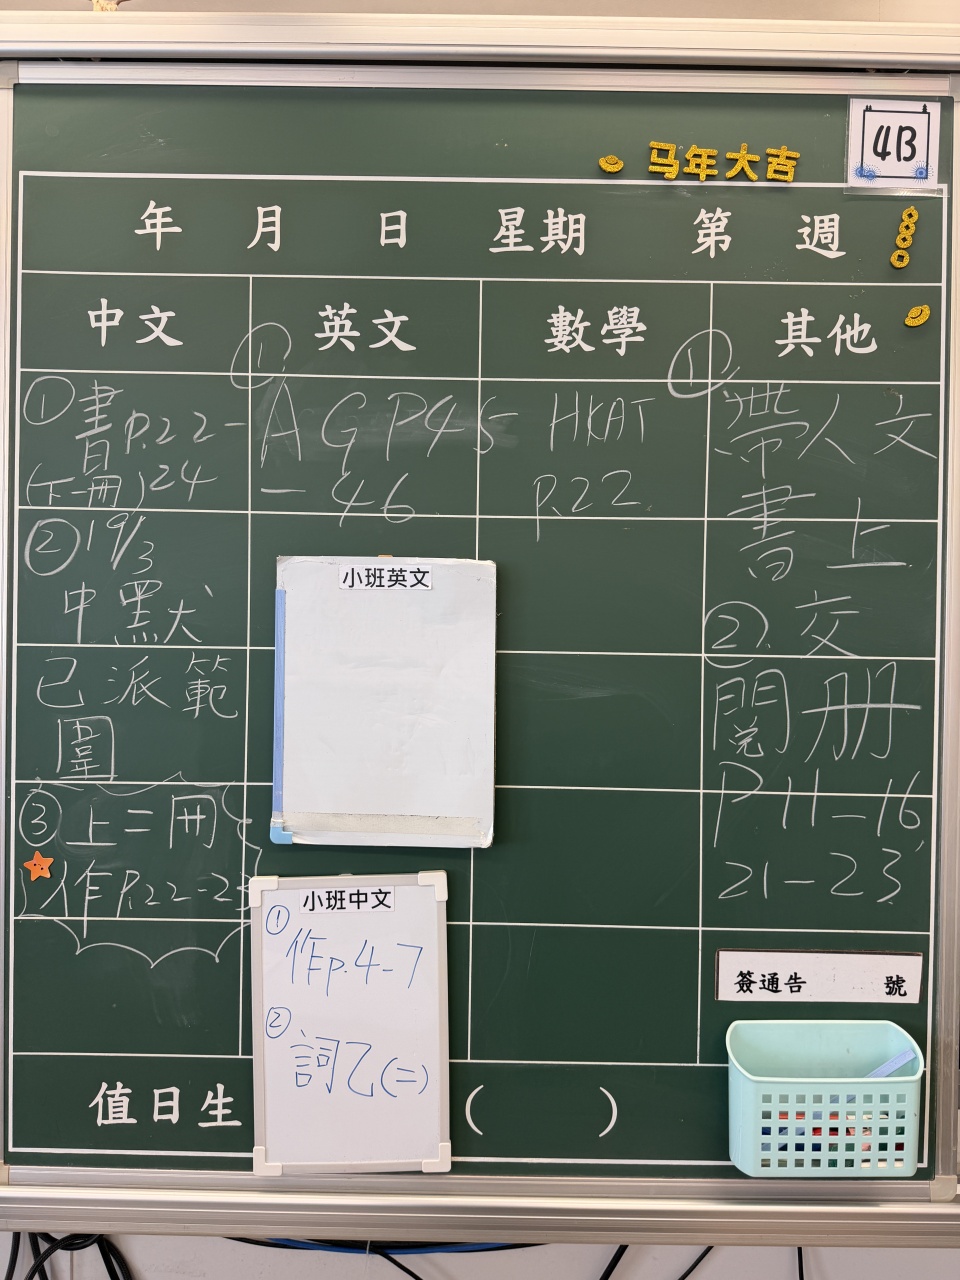 4B
马年大吉
年 月 日 星期 第 週
中文 英文 數學 其他
① 書P.22-
(下一冊)24
② 19/3
中默
已派範
圍
③ 上二冊
作P.22-23
① AGP45
-46
HKAT
P.22
① 帶人文
書上
② 交
閱册
P11-16,
21-23
小班英文
小班中文
① 作p.4-7
② 詞乙(二)
簽通告 號
值日生 ( )